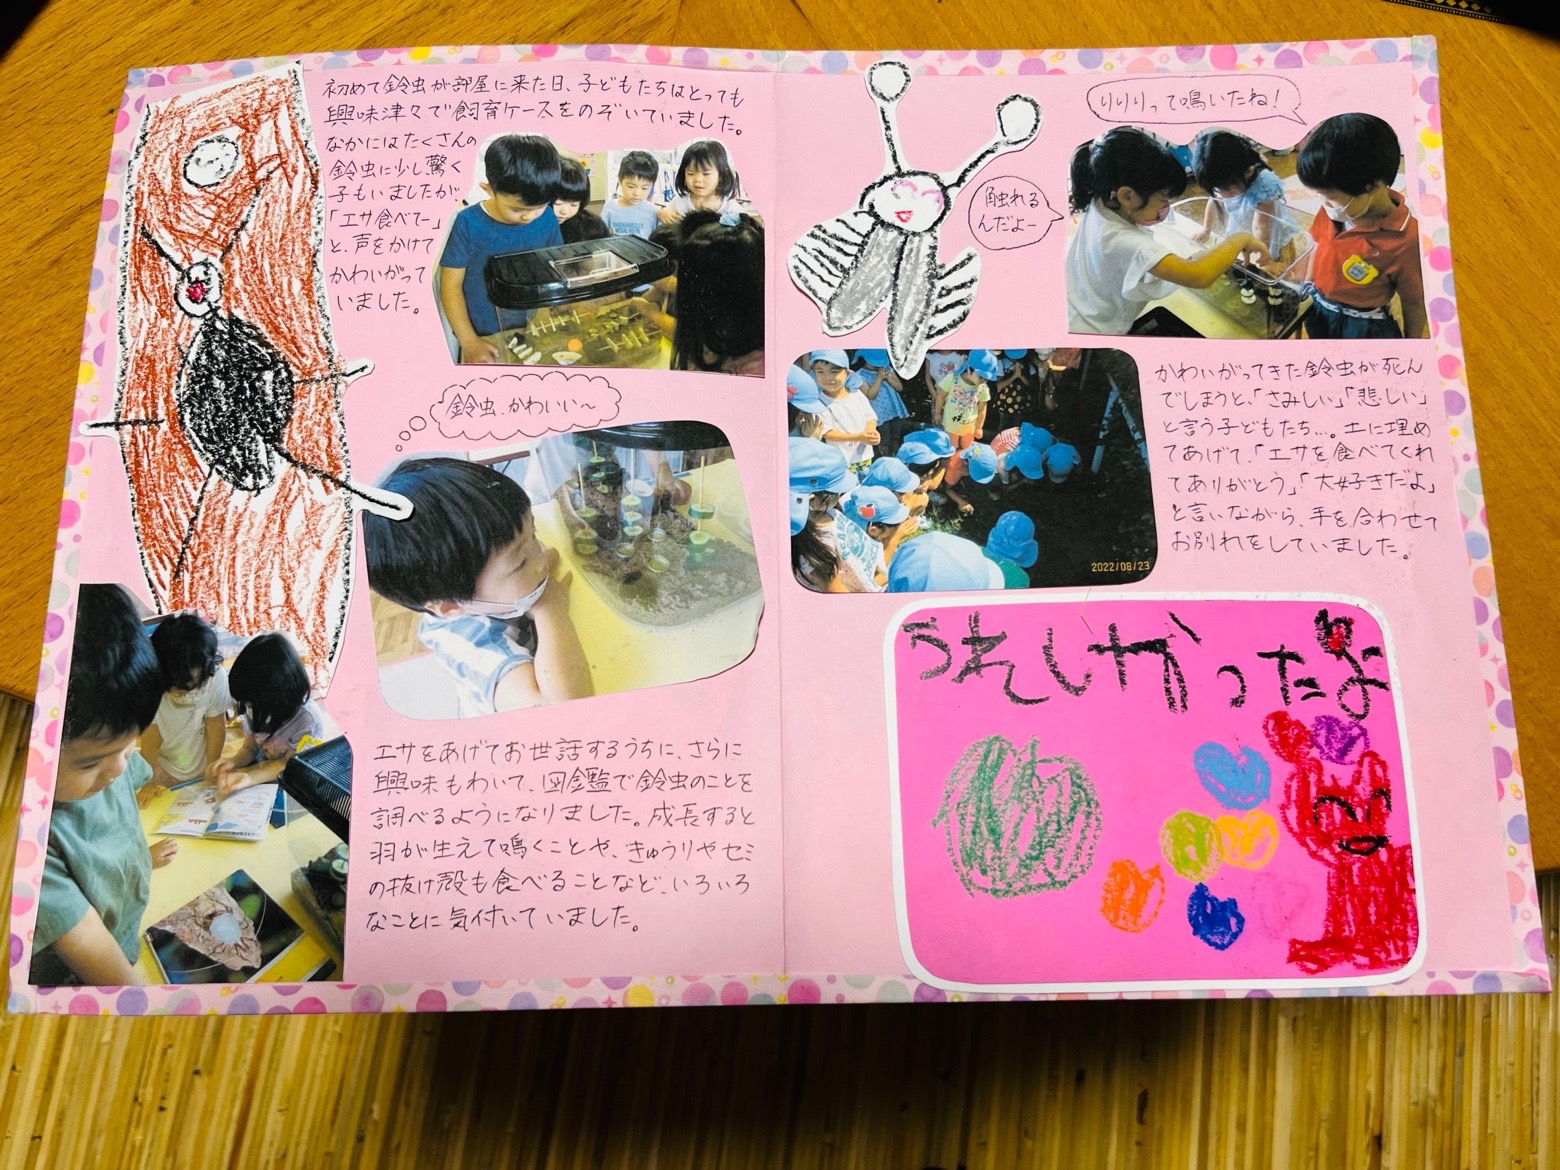 初めて鈴虫が部屋に来た日、子どもたちはとっても
興味津々で飼育ケースをのぞいていました。
なかにはたくさんの
鈴虫に少し驚く
子もいましたが、
「エサ食べてー」
と、声をかけて
かわいがって
いました。
鈴虫、かわいい～
エサをあげてお世話するうちに、さらに
興味もわいて、図鑑で鈴虫のことを
調べるようになりました。成長すると
羽が生えて鳴くことや、きゅうりやセミ
の抜け殻も食べることなど、いろいろ
なことに気付いていました。
りりりって鳴いたね！
触れる
んだよー
かわいがってきた鈴虫が死ん
でしまうと、「さみしい」「悲しい」
と言う子どもたち…。土に埋め
てあげて、「エサを食べてくれ
てありがとう」「大好きだよ」
と言いながら、手を合わせて
お別れをしていました。
2022/08/23
うれしかったよ